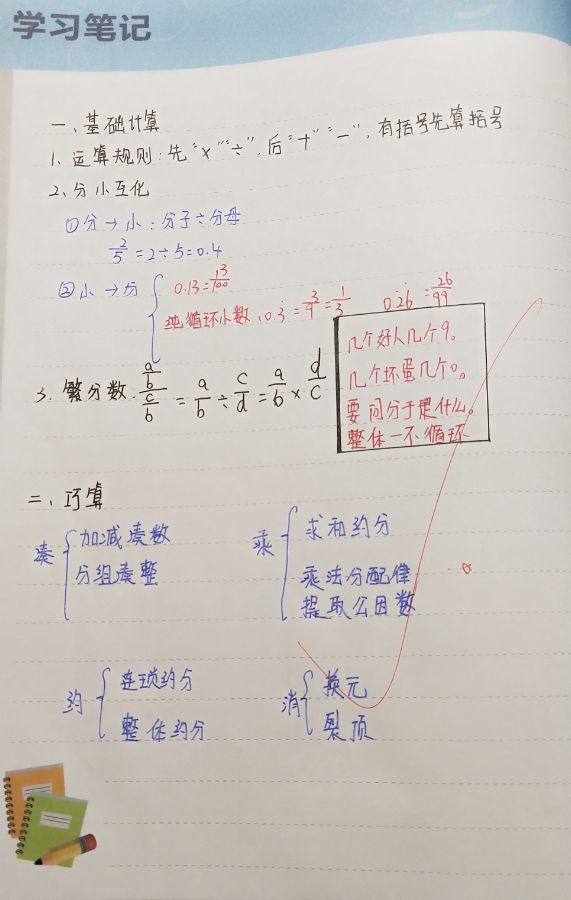 学习笔记
一、基础计算
1、运算规则：先“×”“÷”，后“+”“-”，有括号先算括号
2、分小互化
①分→小：分子÷分母
2/5=2÷5=0.4
②小→分{
0.13=13/100
纯循环小数：0.3̇=3/9=1/3 0.2̇6̇=26/99
几个好人几个9。
几个坏蛋几个0。
要问分子是什么。
整体一不循环
3、繁分数：(a/b)/(c/b)=a/b÷c/d=a/b×d/c
二、巧算
凑{
加减凑数
分组凑整
乘{
求和约分
乘法分配律
提取公因数
约{
连琐约分
整体约分
消{
换元
裂项